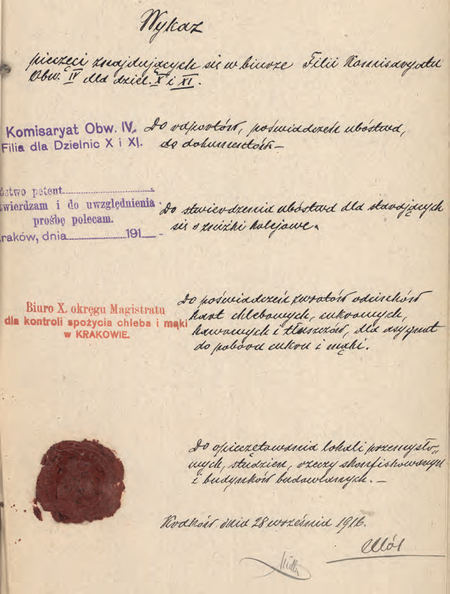 Wykaz
pieczęci znajdujących się w biurze Filii Komisaryatu
Obw. IV dla dziel. X i XI.
Komisaryat Obw. IV.
Filia dla Dzielnic X i XI.
Do odpowiedzi, poświadczeń ubóstwa,
do dokumentów —
petent
i do uwzględnienia
prośbę polecam.
dnia 191
Do stwierdzenia ubóstwa dla starających
się o zniżki kolejowe.
Biuro X. okręgu Magistratu
dla kontroli spożycia chleba i mąki
w KRAKOWIE.
Do poświadczeń zwrotów odcinków
kart chlebowych, cukrowych,
kawowych i tłuszczów, dla asygnat
do poboru cukru i mąki.
Do opieczętowania lokali przemysło-
wych, studzien, rzeczy skonfiskowanych
i budynków budowlanych. —
dnia 28 września 1916.